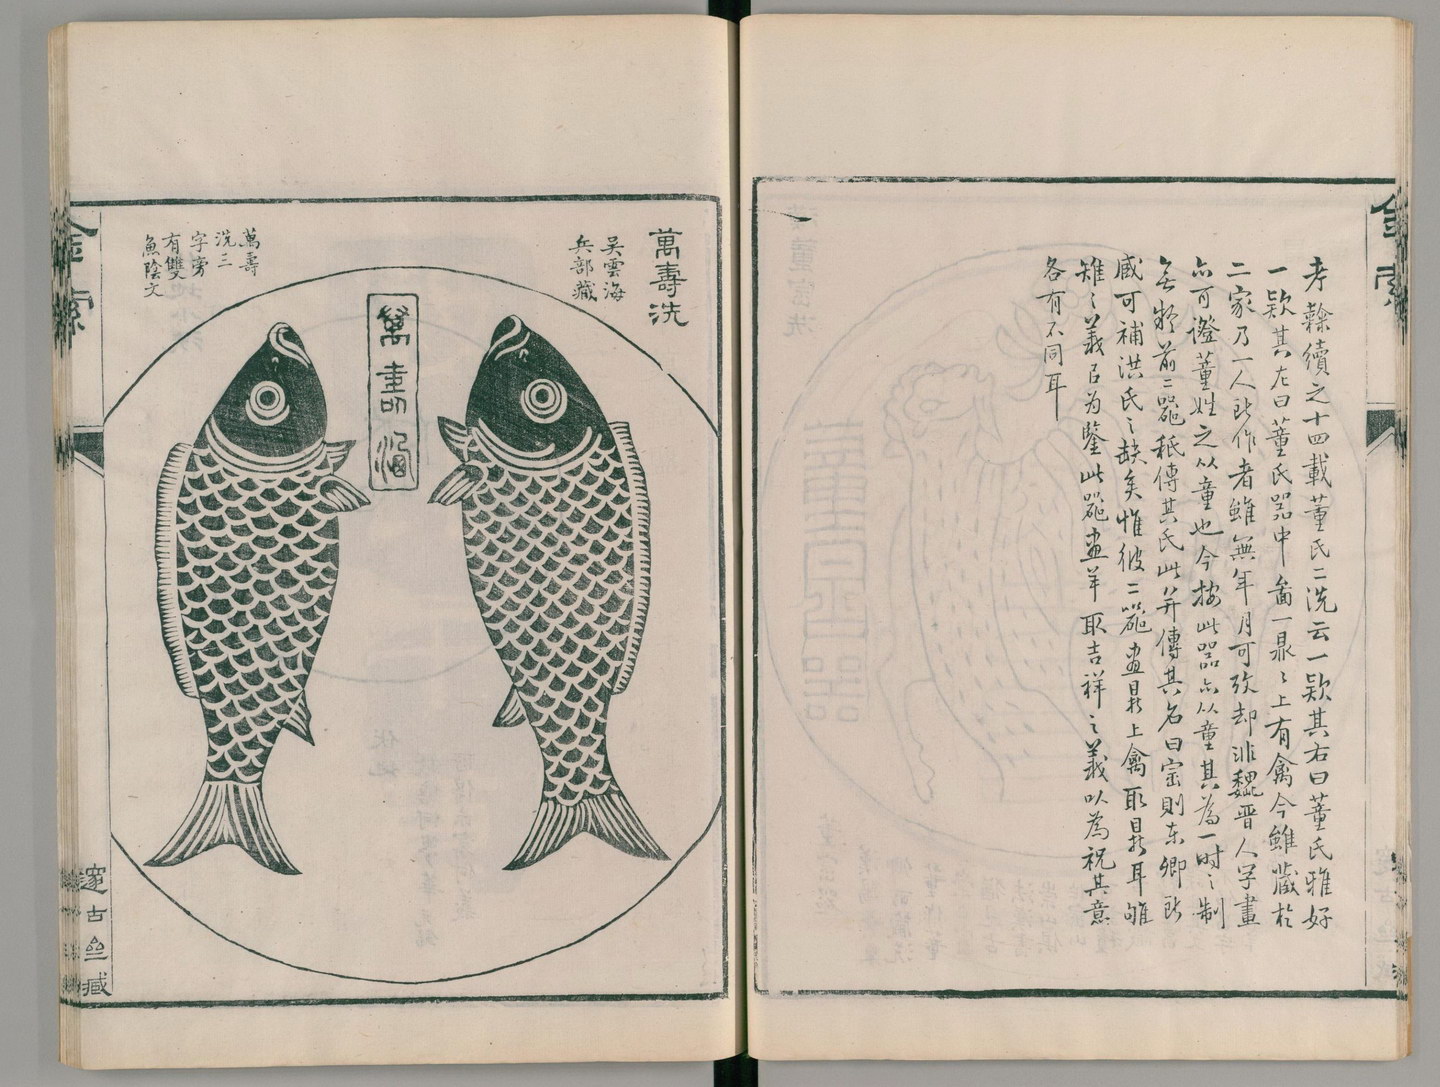 考隸續之十四載董氏二洗云一欵其右曰董氏雅好
一欵其左曰董氏器中畫一鼎〻上有禽今雖藏於
二家乃一人所作者雖無年月可攷却非魏晋人字畫
亦可證董姓之从童也今按此器亦从童其為一時之制
無疑前二器秖傳其氏此并傳其名曰宻則東卿所
咸可補洪氏之缺矣惟彼二器畫鼎上禽取鼎耳雊
雉之義以為鑒此器畫羊取吉祥之義以為祝其意
各有不同耳
金索
萬壽洗
吴雲海
兵部藏
萬壽
洗三
字旁
有雙
魚陰文
金索
邃古齋臧